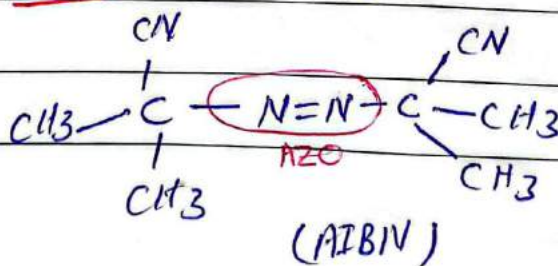 CN CN
CH3 C N=N C CH3
AZO
CH3 CH3
(AIBN)